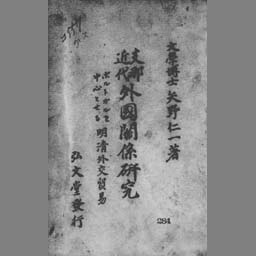 文學博士 矢野仁一著
支那
近代 外國關係研究
ポルトガルを
中心とせる 明清外交貿易
弘文堂發行
284